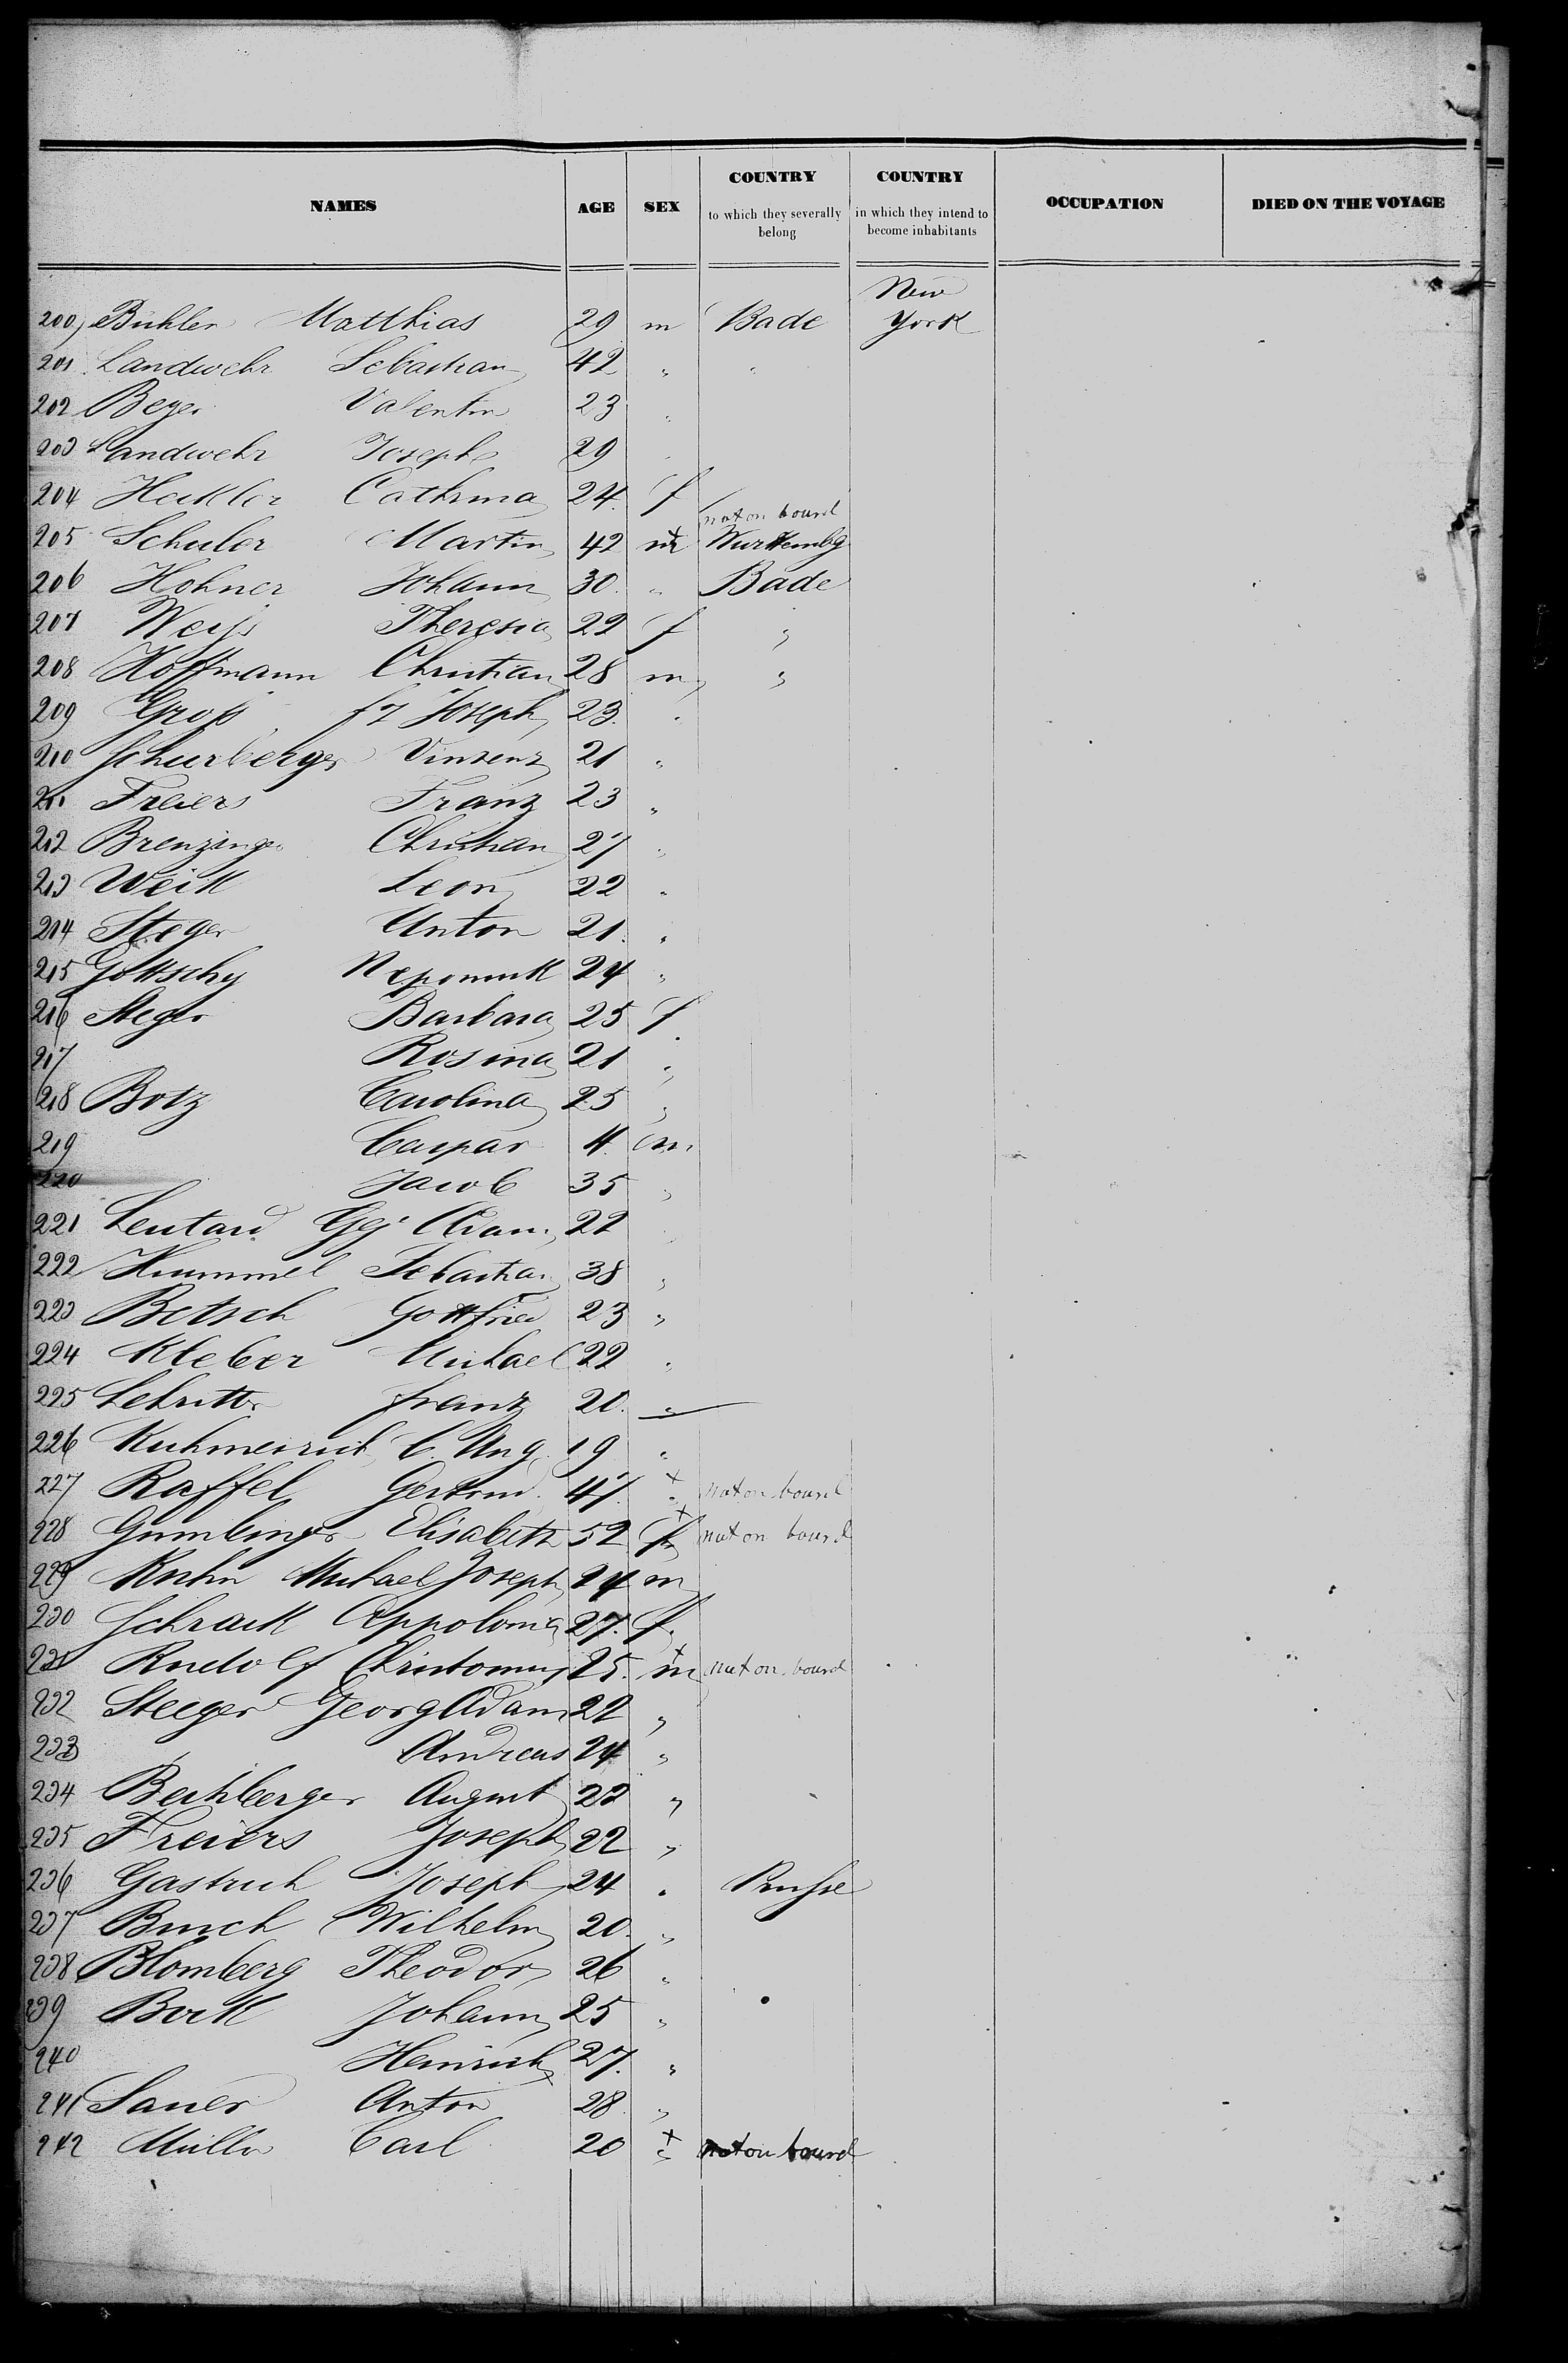 NAMES AGE SEX COUNTRY to which they severally belong COUNTRY in which they intend to become inhabitants OCCUPATION DIED ON THE VOYAGE
200) Buhler Matthias 29 m Bade New York
201 Landwehr Sebastian 42 " "
202 Beyer Valentin 23 "
203 Landwehr Joseph 29 "
204 Heckler Cathrina 24 f
205 Schuler Martin 42 m x not on board Wurttembg
206 Hohner Johann 30 " Bade
207 Weiß Theresia 22 f "
208 Hoffmann Christian 28 m "
209 Groß fz Joseph 23 "
210 Schurberger Vinzenz 21 "
211 Freiers Franz 23 "
212 Brenzinger Christian 27 "
213 Weik Leon 22 "
214 Steger Anton 21 "
215 Gottschy Nepomuk 24 "
216 Steger Barbara 25 f
217 Rosina 21 "
218 Botz Carolina 25 "
219 Caspar 4 m
220 Jacob 35 "
221 Leutard Gg Adam 22 "
222 Hummel Sebastian 38 "
223 Betsch Gottfried 23 "
224 Kleber Michael 22 "
225 Lehritter Franz 20 "
226 C. Aug. 19 "
227 Raffel 47 x " not on board
228 Elisabeth 52 x f not on board
229 Kuhn Michael Joseph 24 m
230 Schrack Appolonia 27 f
231 Rudolf 25 x m not on board
232 Steeger Georg Adam 22 "
233 Andreas 24 "
234 Bechberger August 22 "
235 Freiers Joseph 22 "
236 Gastrich Joseph 24 " Prusse
237 Busch Wilhelm 20 "
238 Blomberg Theodor 26 "
239 Bock Johann 25 "
240 Heinrich 27 "
241 Sauer Anton 28 "
242 Muller Carl 20 x " not on board